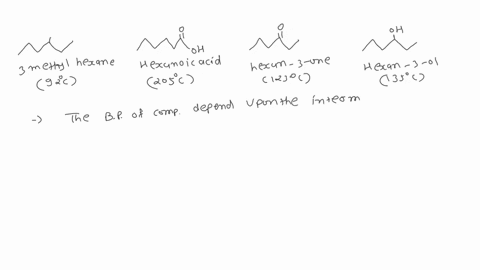 O
OH
O
OH
3 methyl hexane
Hexanoic acid
hexan-3-one
Hexan-3-ol
(92°C)
(205°C)
(123°C)
(135°C)
-> The B.P. of comp. depend upon the interm